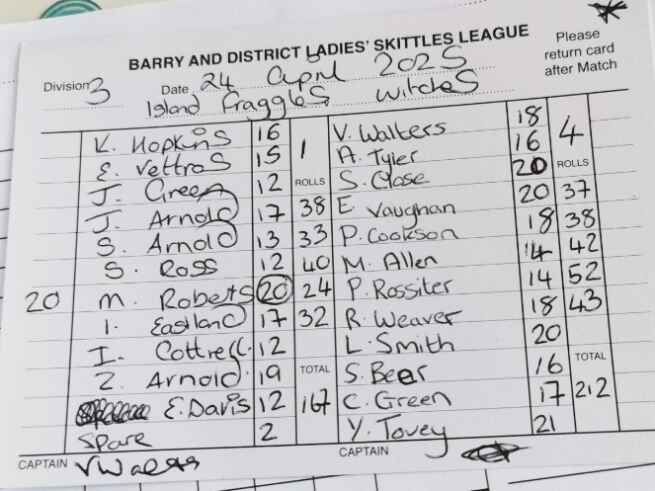 BARRY AND DISTRICT LADIES' SKITTLES LEAGUE
Please return card after Match
Division 3 Date 24 April 2025
Island Fraggles Witches
K. Hopkins 16 1 V. Walters 18 4
E. Vettros 15 A. Tyler 16
J. Green 12 ROLLS S. Close 20 ROLLS
J. Arnold 17 38 E Vaughan 20 37
S. Arnold 13 33 P. Cookson 18 38
S. Ross 12 40 M. Allen 14 42
20 M. Roberts 20 24 P. Rossiter 14 52
I. Eastland 17 32 R. Weaver 18 43
I. Cottrell 12 L. Smith 20
Z. Arnold 19 TOTAL S. Beer 16 TOTAL
E. Davis 12 167 C. Green 17 212
Spare 2 Y. Tovey 21
CAPTAIN VWalters CAPTAIN